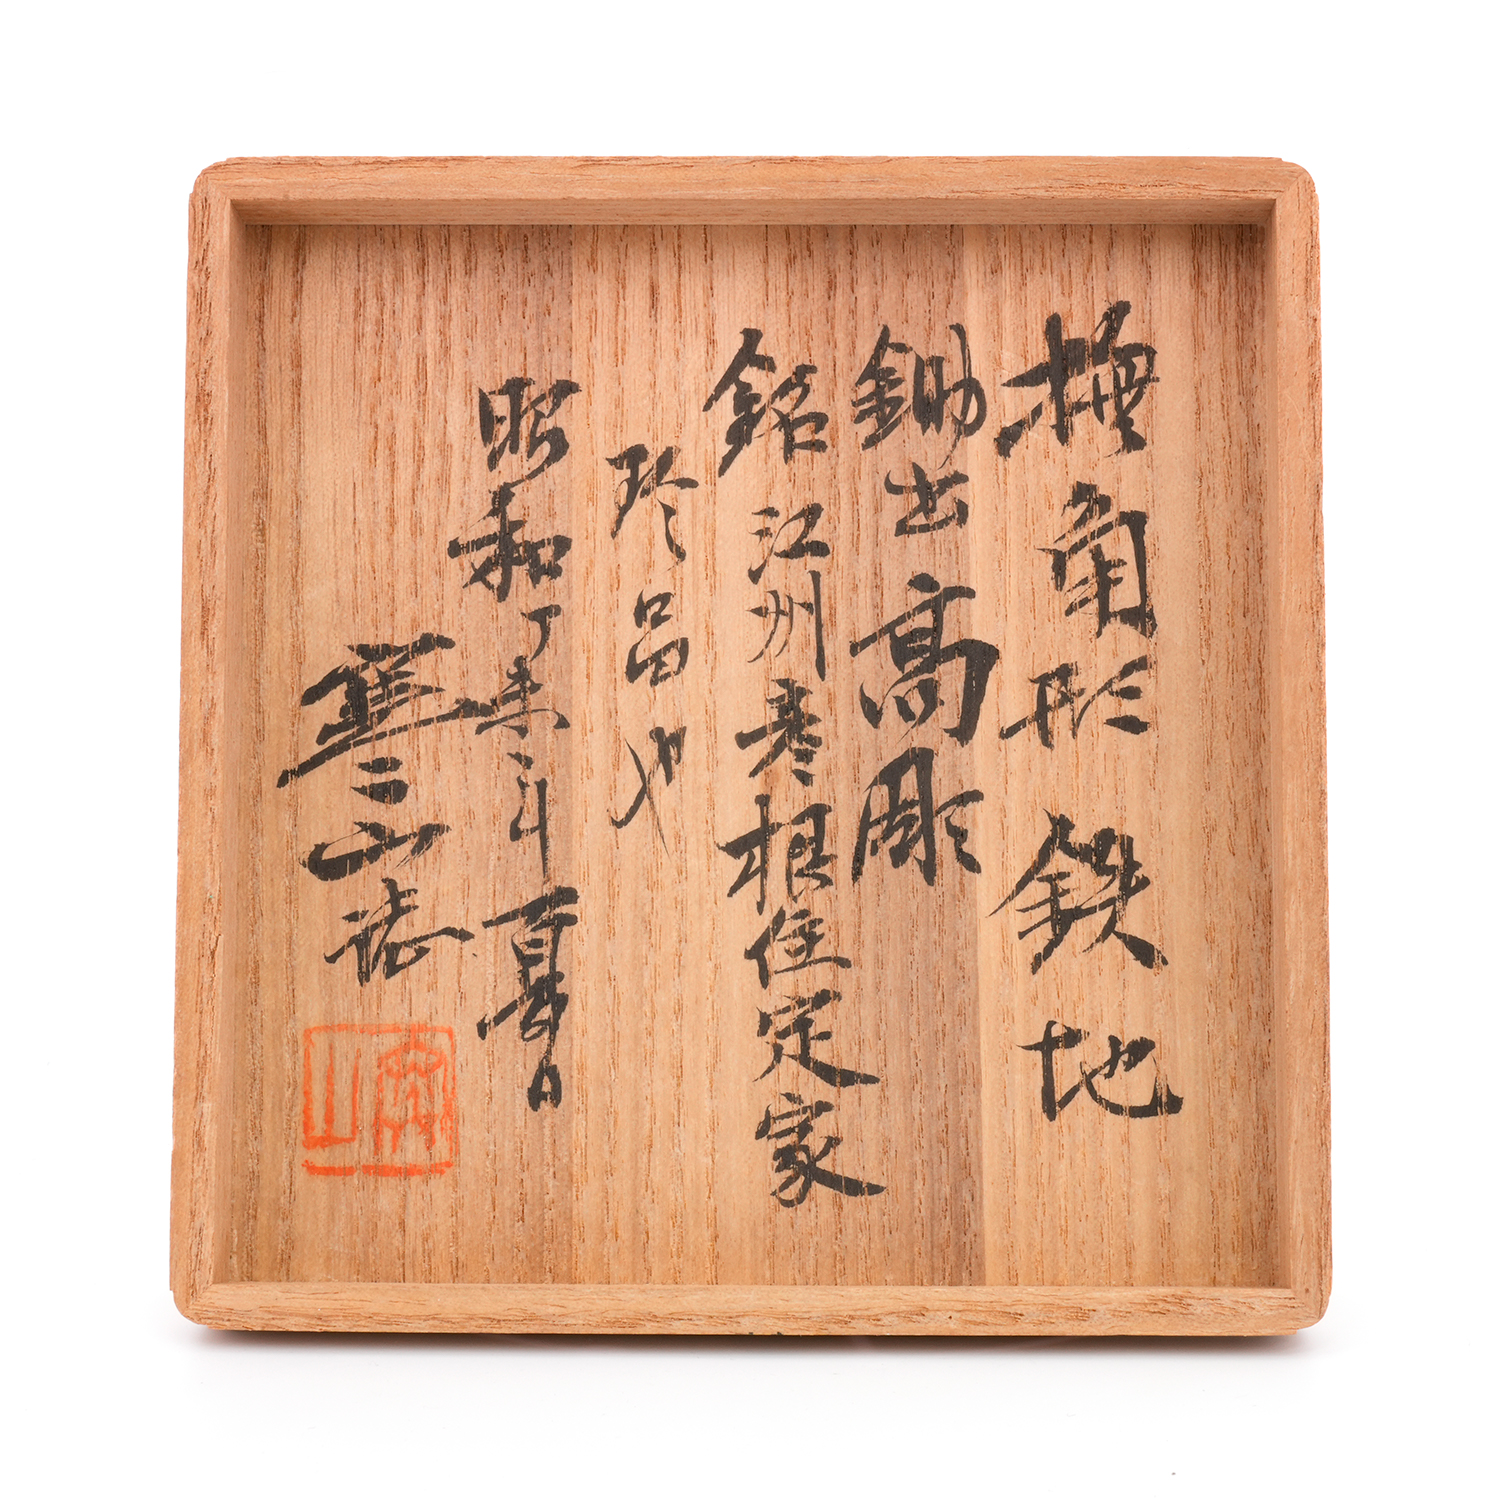 撫角形鉄地
鋤出高彫
銘江州彦根住定家
珍品也
昭和丁未年夏日
寒山誌
寒山